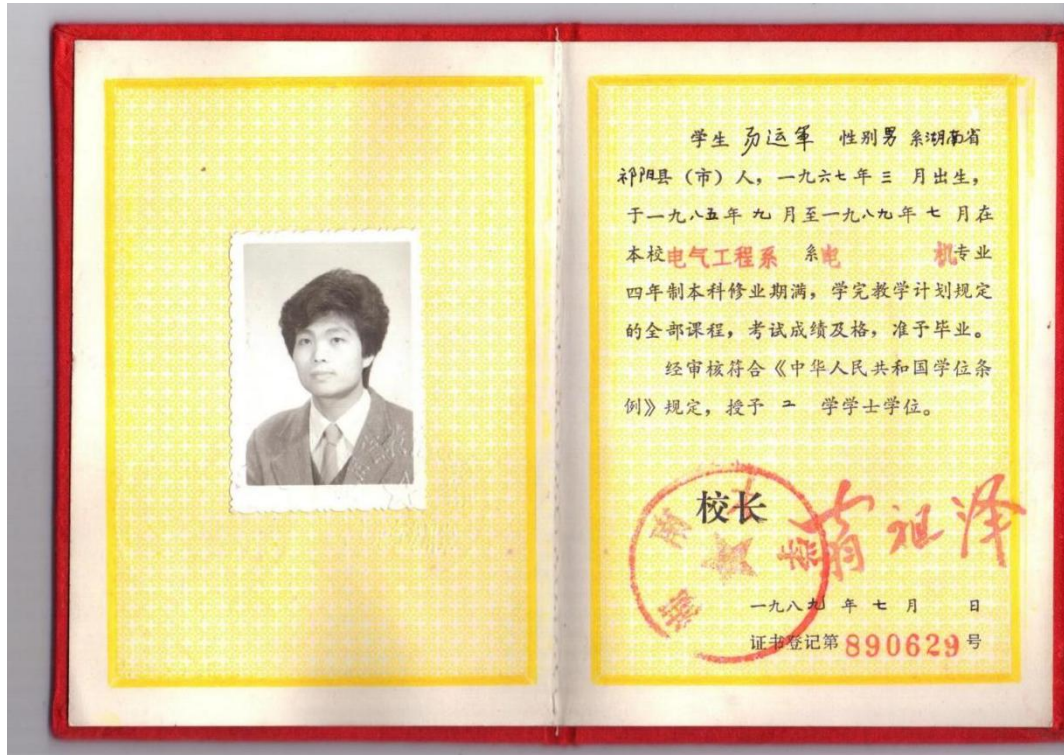 学生 易运军 性别 男 系湖南省
祁阳县（市）人，一九六七年 三 月出生，
于一九八五年 九 月至一九八九年 七 月在
本校电气工程系 系电 机专业
四年制本科修业期满，学完教学计划规定
的全部课程，考试成绩及格，准予毕业。
经审核符合《中华人民共和国学位条
例》规定，授予 工 学学士学位。
校长 翁祖泽
湖南大学
一九八九 年 七 月 日
证书登记第890629号